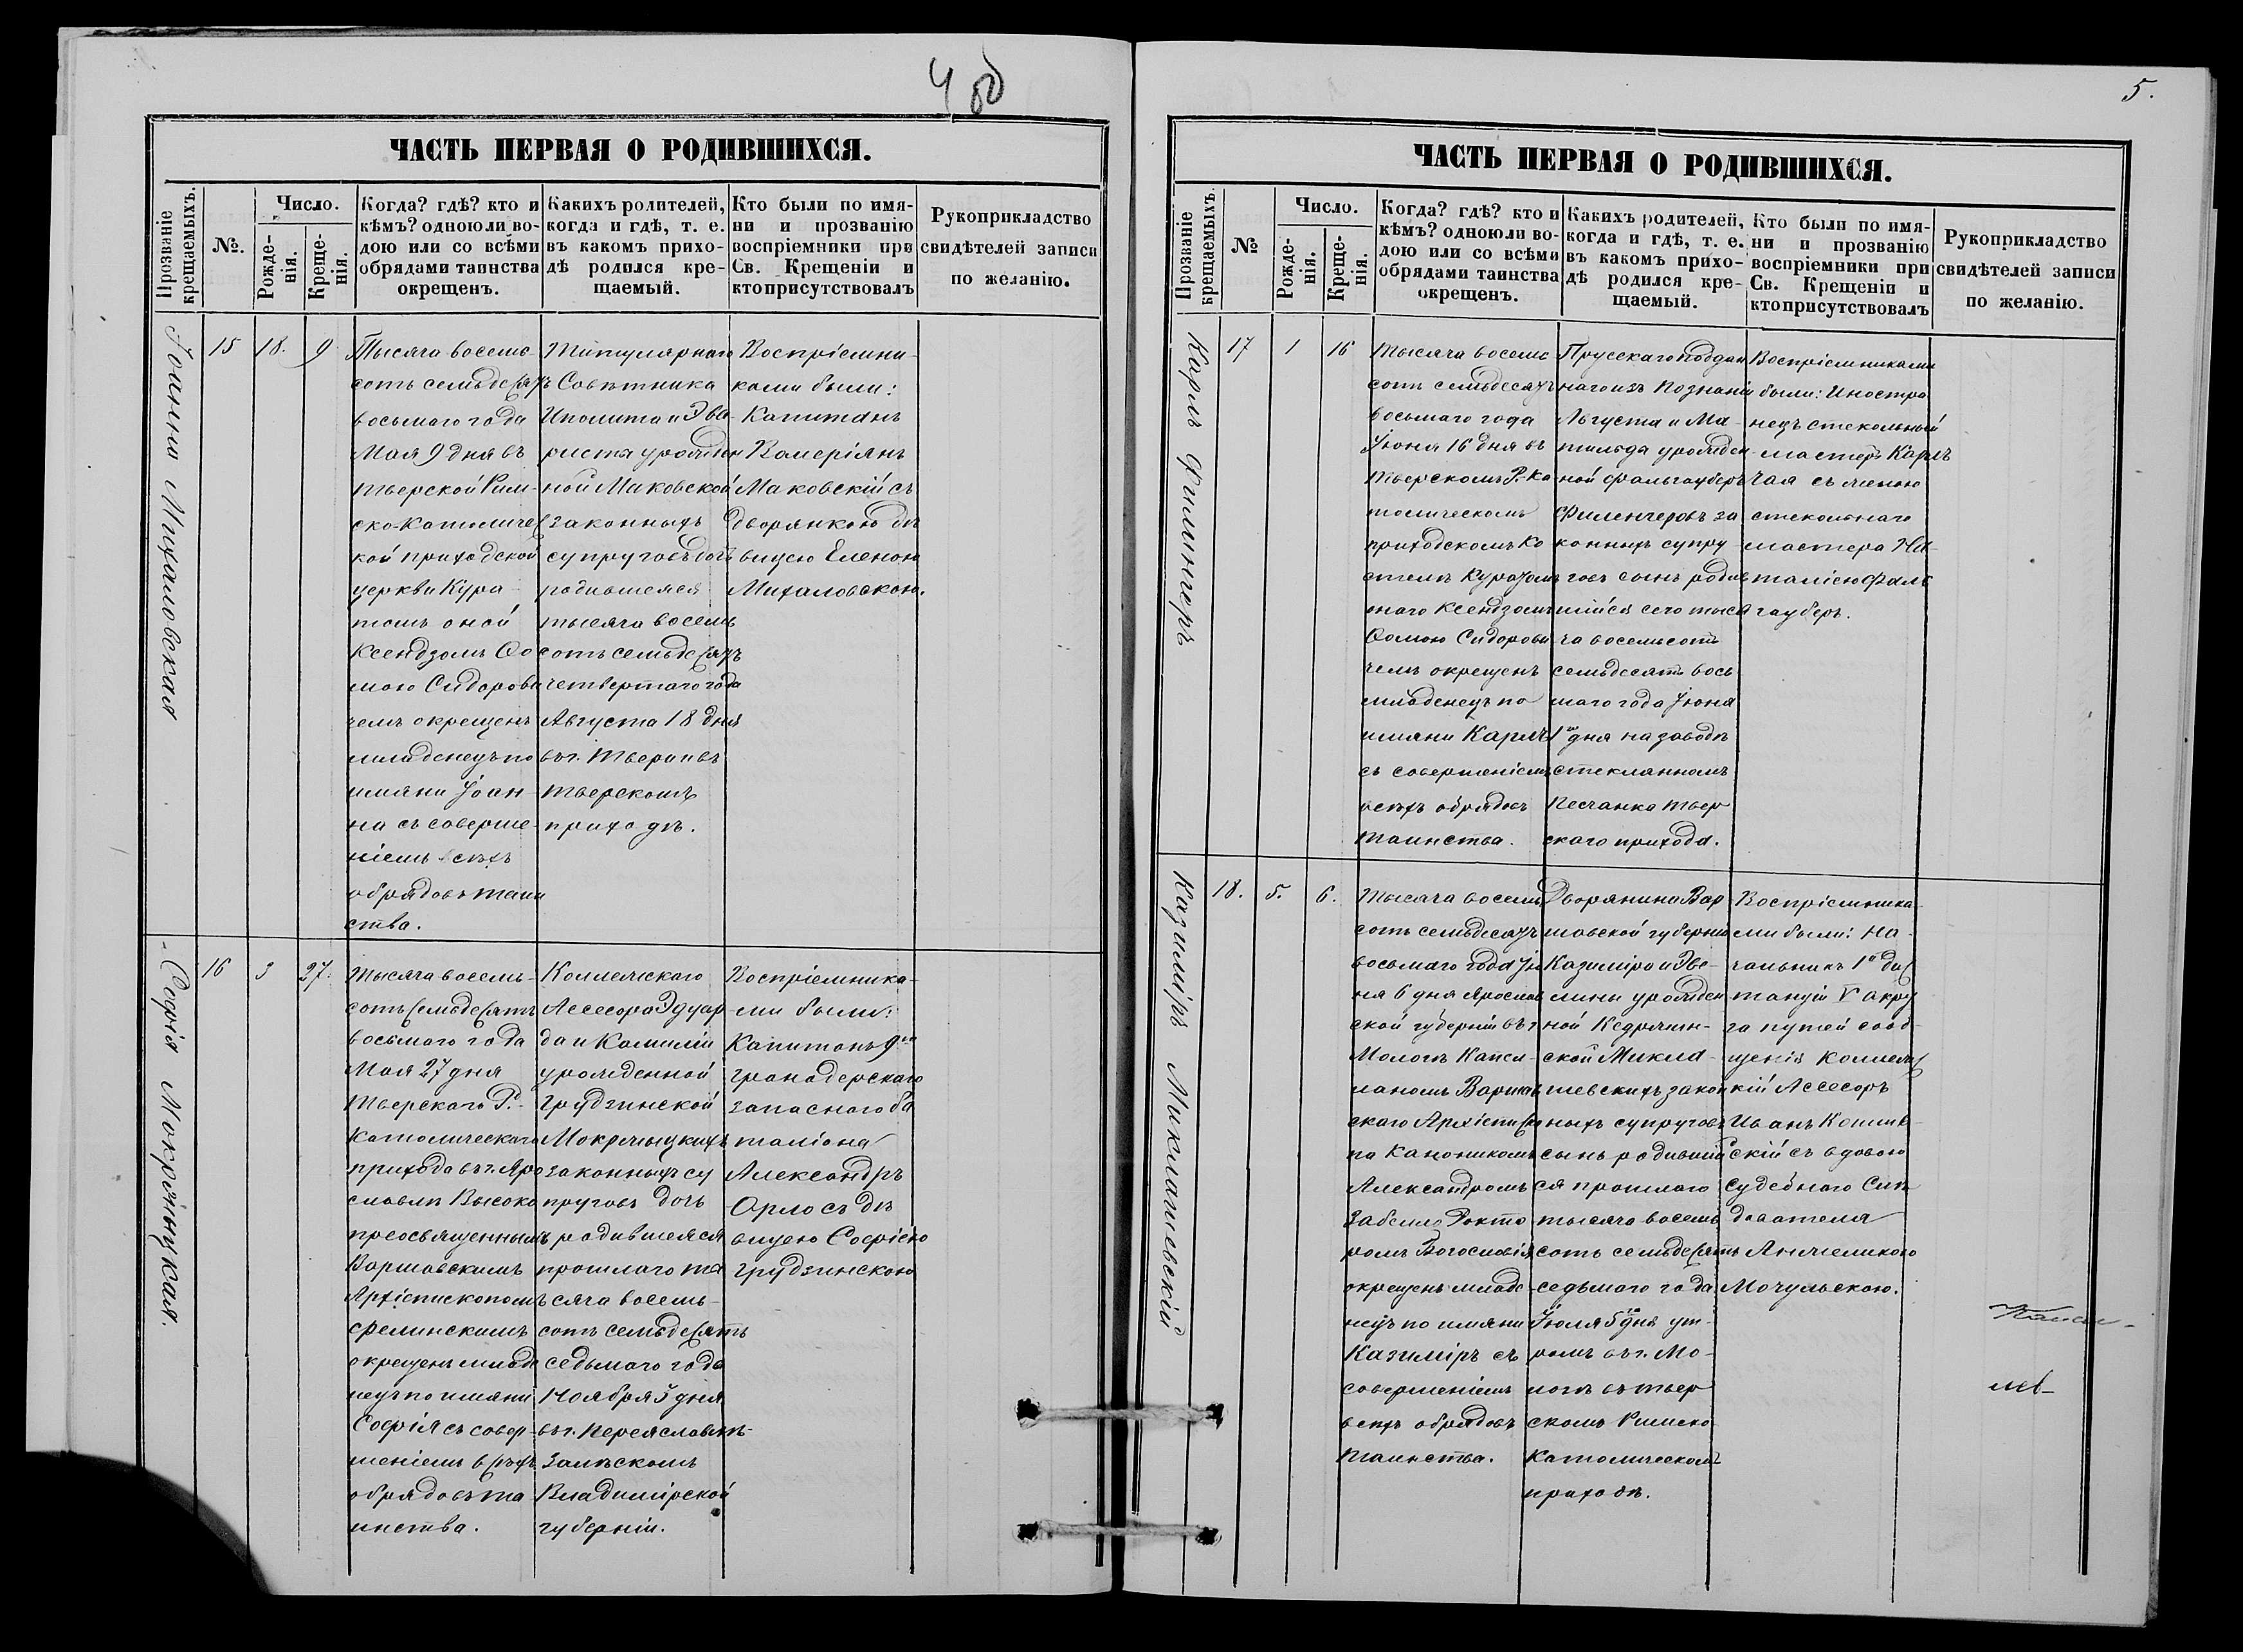 4 об
ЧАСТЬ ПЕРВАЯ О РОДИВШИХСЯ.
Прозваніе крещаемыхъ.
№.
Число.
Рожде-
нія.
Креще-
нія.
Когда? гдѣ? кто и
кѣмъ? одноюли во-
дою или со всѣми
обрядами таинства
окрещенъ.
Какихъ родителей,
когда и гдѣ, т. е.
въ какомъ прихо-
дѣ родился кре-
щаемый.
Кто были по имя-
ни и прозванію
воспріемники при
Св. Крещеніи и
ктоприсутствовалъ
Рукоприкладство
свидѣтелей записи
по желанію.
Іоанна Михаловская
15
18.
9
Тысяча восемь-
сотъ семьдесятъ
восьмаго года
Мая 9 дня въ
Тверской Рим-
ско-Католичес
кой приходской
церкви Кура-
томъ оной
Ксендзомъ Ѳо
мою Сидорови
чемъ окрещенъ
младенецъ по
имяни Іоан-
на съ соверше-
ніемъ всѣхъ
обрядовъ таин
ства.
Титулярнаго
Совѣтника
Иполита и Эва-
риста урожден
ной Маковской
законныхъ
супруговъ дочь
родившаяся
тысяча восемь
сотъ семьдесятъ
четвертаго года
Августа 18 дня
въ г. Твери въ
Тверскомъ
приходѣ.
Воспріемни-
ками были:
Капитанъ
Валеріянъ
Маковскій съ
дворянкою дѣ
вицею Еленою
Михаловскою.
Софія Мокржыцкая.
16
3
27.
Тысяча восемь-
сотъ семьдесятъ
восьмаго года
Мая 27 дня
Тверскаго Р.-
Католическаго
прихода въ г. Яро
славлѣ Высоко
преосвященнымъ
Варшавскимъ
Архіепископомъ
Фелинскимъ
окрещенъ младе
нецъ по имяни
Софія съ совер-
шеніемъ всѣхъ
обрядовъ та
инства.
Коллежскаго
Ассесора Эдуар-
да и Камиліи
урожденной
Грудзинской
Мокржыцкихъ
законныхъ су
пруговъ дочь
родившаяся
прошлаго ты
сяча восемь-
сотъ семьдесятъ
седьмаго года
Ноября 3 дня
въ г. Переяславлѣ-
Залѣскомъ
Владимірской
губерніи.
Воспріемника-
ми были:
Капитанъ 9го
гранодерскаго
запаснаго ба
таліона
Александръ
Орло съ дѣ
вицею Софією
Грудзинскою
5.
ЧАСТЬ ПЕРВАЯ О РОДИВШИХСЯ.
Прозваніе крещаемыхъ.
№
Число.
Рожде-
нія.
Креще-
нія.
Когда? гдѣ? кто и
кѣмъ? одноюли во-
дою или со всѣми
обрядами таинства
окрещенъ.
Какихъ родителей,
когда и гдѣ, т. е.
въ какомъ прихо-
дѣ родился кре-
щаемый.
Кто были по имя-
ни и прозванію
воспріемники при
Св. Крещеніи и
ктоприсутствовалъ
Рукоприкладство
свидѣтелей записи
по желанію.
Карлъ Филингеръ
17
1
16
Тысяча восемь
сотъ семьдесятъ
восьмаго года
Іюня 16 дня въ
Тверскомъ Р. Ка
толическомъ
приходскомъ Ко
стелѣ Куратомъ
онаго Ксендзомъ
Ѳомою Сидорови
чемъ окрещенъ
младенецъ по
имяни Карлъ
съ совершеніемъ
всѣхъ обрядовъ
Таинства.
Прусскаго поддан
наго изъ Познаніи
Августа и Ма
тильда урожден
ной Фальгауберъ
Филенгеровъ за
конныхъ супру
говъ сынъ родив
шійся сего тыся
ча восемьсотъ
семьдесятъ вось
маго года Іюня
1го дня на заводѣ
стеклянномъ
Песчанка Твер
скаго прихода.
Воспріемниками
были: Иностра
нецъ стекольный
мастеръ Карлъ
Чая съ женою
стекольнаго
мастера На-
таліею Фаль
гауберъ.
Казиміръ Миклашевскій
18.
5.
6.
Тысяча восемь
сотъ семьдесятъ
восьмаго года Ію
ня 6 дня Ярослав
ской губерніи въ г.
Мологѣ Капел-
ланомъ Варшав
скаго Архіеписко
па Каноникомъ
Александромъ
Забелло Докто
ромъ Богословія
окрещенъ младе-
нецъ по имяни
Казиміръ съ
совершеніемъ
всѣхъ обрядовъ
Таинства.
Дворянина Вар
шавской губерніи
Казиміра и Эве-
лины урожден
ной Кедржин-
ской Микла-
шевскихъ закон
ныхъ супруговъ
сынъ родившій
ся прошлаго
тысяча восемь
сотъ семьдесятъ
седьмаго года
Іюля 5го дня ут-
ромъ въ г. Мо-
логѣ въ Твер
скомъ Римско
Католическомъ
приходѣ.
Воспріемника-
ми были: На-
чальникъ 1й дис
танціи V окру
га путей сооб-
щенія Коллежс
кій Ассесоръ
Иванъ Коплев-
скій съ вдовою
Судебнаго Слѣ
дователя
Анжеликою
Мочульскою.